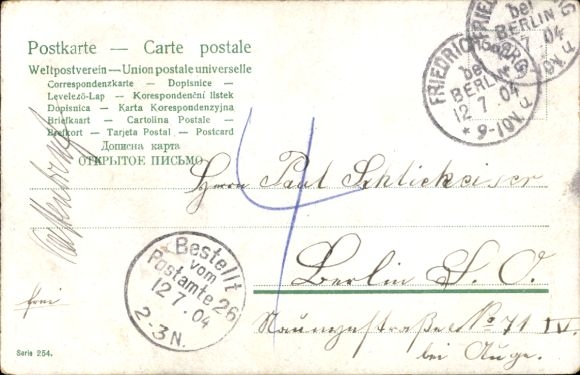 Postkarte — Carte postale
Weltpostverein — Union postale universelle
Correspondenzkarte - Dopisnice -
Levelező-Lap — Korespondenční lístek
Dopisnica - Karta Korespondenzyjna
Briefkaart - Cartolina Postale -
Brefkort - Tarjeta Postal - Postcard
Дописна карта
ОТКРЫТОЕ ПИСЬМО
FRIEDRICHSBERG
bei
BERLIN
12 7 04
* 9-10V. *
FRIEDRICHSBERG
bei
BERLIN
12 7 04
9-10V.
4
Herrn Paul Schlickeiser
Berlin S. O.
Naunynstraße No 71 IV.
bei Auge.
Bestellt
vom
Postamte 26
12 7. 04
2-3 N.
frei
Serie 254.